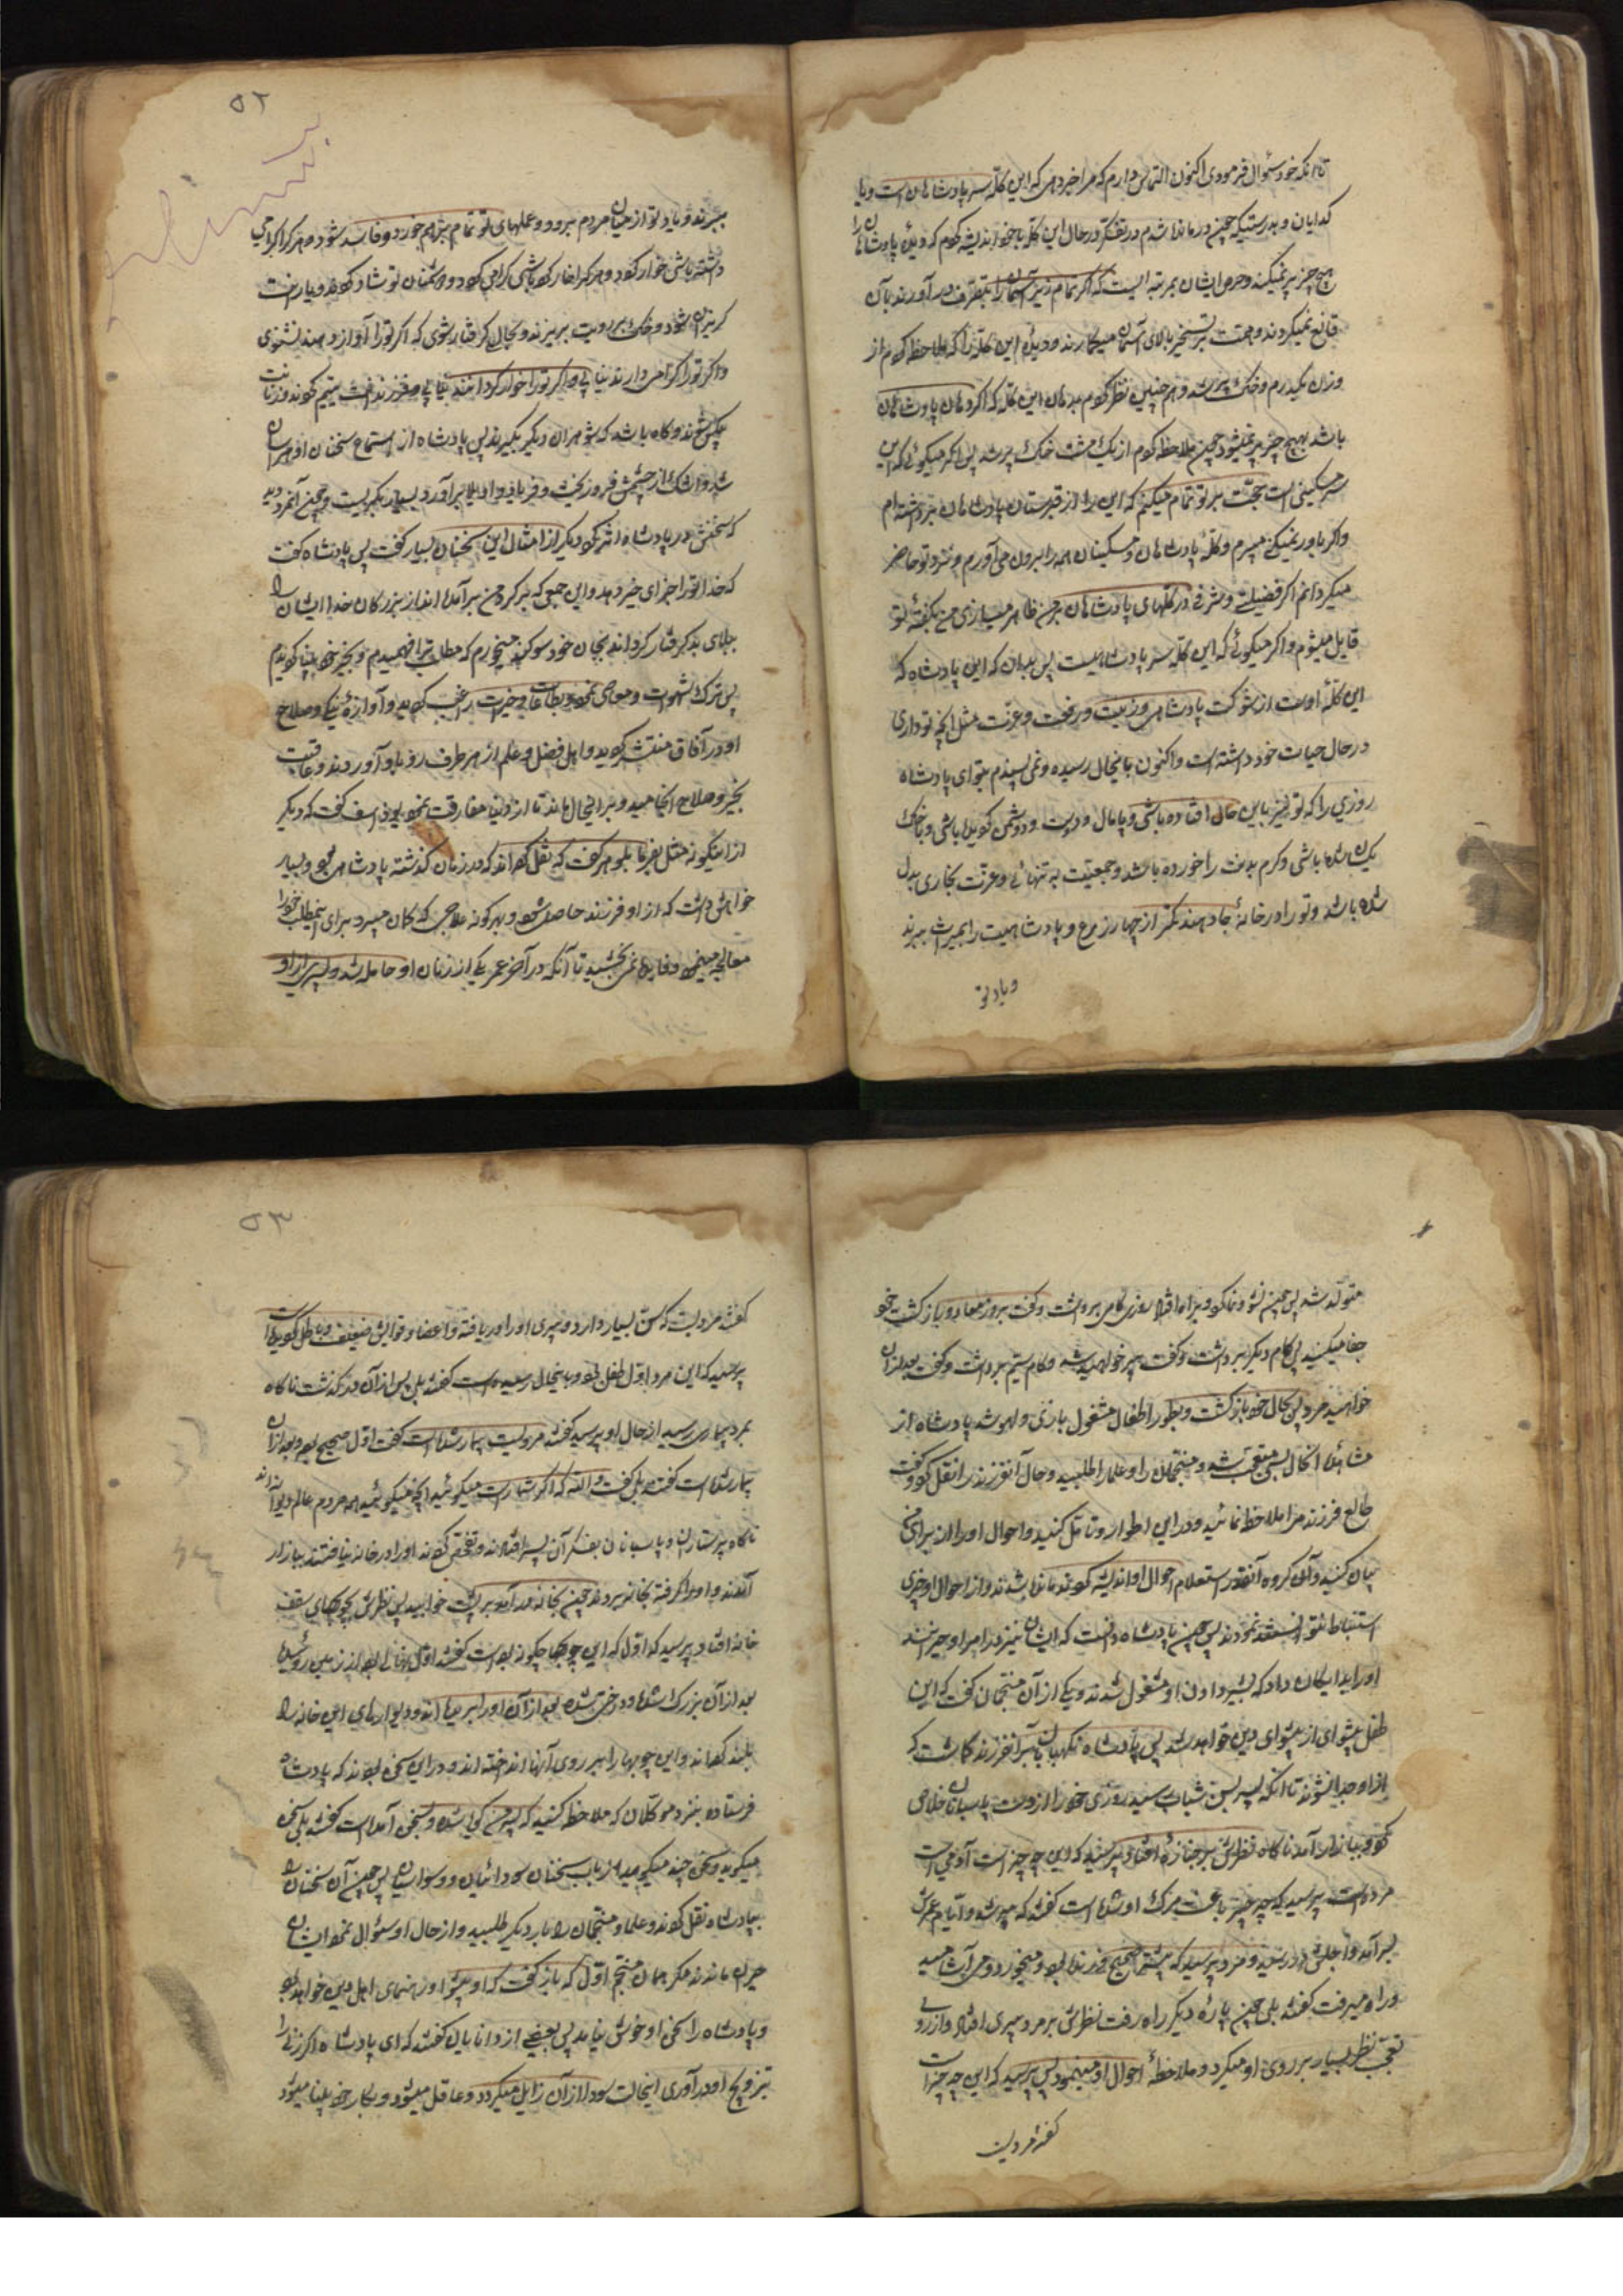 تا آنکه خود سئوال فرمودی اکنون التماس دارم که مرا خبر دهی که این کله سر پادشاهان است و یا
کدایان و بدرستیکه چون درماندا شدم در تفکر در حال این کله با خود اندیشه کردم که دیدۀ پادشاهان را
هیچ چیز پر نمیکند و حرص ایشان بمرتبه ایست که اگر تمام زیر آسمان را بتصرف در آورند بآن
قانع نمیکردند و همت بتسخیر بالای آسمان میکمارند و دیدۀ این کله را که ملاحظه کردم از
وزن یکدرم خاک پر شد و هم چنین نظر کردم بدهان این کله که اگر دهان پادشاهان
باشد بهیچ چیز پر نمیشود چون ملاحظه کردم از یک مشت خاک پر شد پس اگر میکوئی که این
سر مسکینی است حجت بر تو تمام میکنم که این را از قبرستان پادشاهان برداشته ام
و اگر باور نمیکنی میروم و کله پادشاهان و مسکینان همه را بیرون می آورم و نزد تو حاضر
میکردانم اگر فضیلتی و شرفی در کلهای پادشاهان بر من ظاهر میسازی من بگفته تو
قایل میشوم و اگر میکوئی که این کله سر پادشاهیست پس بدان که این پادشاه که
این کله اوست از شوکت پادشاهی و زینت و رفعت و عزت مثل آنچه تو داری
در حال حیات خود داشته است و اکنون باینحال رسیده و نمی پسندم بتو ای پادشاه
روزی را که تو نیز باین حال افتاده باشی و پامال دوست و دشمن کردیده باشی و با خاک
یکسان شده باشی و کرم بدنت را خورده باشد و جمعیتت به تنهائی و عزتت بخاری بدل
شده باشد و تو را در خانۀ جا دهند کمتر از چهار زرع و پادشاهیت را بمیراث ببرند
و یاد تو
۵۲
ببرند و یاد تو از میان مردم برود و عملهای تو تمام برهم خورد و فاسد شود و هر کرا گرامی
داشته باشی خوار کردد و هر کرا خوار کرده باشی گرامی کردد و دشمنان تو شاد کردند و یارانت
کریزان شود و خاک بر رویت بریزند و بحالی گرفتار شوی که اگر تو را آواز دهند نشنوی
و اگر تو را گرامی دارند نیابی و اگر تو را خوار کردانند نیابی و فرزندانت یتیم کردند و زنانت
بیکس شوند و گاه باشد که شوهران دیگر بگیرند پس پادشاه از استماع سخنان او هراسان
شد و اشک از چشمش فرو ریخت و فریاد واویلا برآورد و بسیار بگریست و چون آنمرد دید
که سخنش در پادشاه اثر کرد دیگر از امثال این سخنان بسیار گفت پس پادشاه گفت
که خدا تو را جزای خیر دهد و این جمعی که بر گرد من برآمدۀ اند از بزرگان خدا ایشان را
ببلای بد گرفتار گرداند بجان خود سوگند میخورم که مطلب ترا فهمیدم و بخیر خود بینا گردیدم
پس ترک شهوت و معاصی نمود و بطاعات و خیرات راغب گردید و آوازۀ نیکی و صلاح
او در آفاق منتشر گردید و اهل فضل و علم از هر طرف رو باو آوردند و عاقبت
بخیر و صلاح انجامید و بر اینحال ماند تا از دنیا مفارقت نمود یوذاسف گفت که دیگر
از اینگونه مثل بفرما بلوهر گفت که نقل کرده اند که در زمان گذشته پادشاهی بود و بسیار
خواهش داشت که از او فرزند حاصل شود و بهر گونه علاجی که گمان میبرد برای اینمطلب خود را
معالجه مینمود و فایده نمی بخشید تا آنکه در آخر عمر یکی از زنان او حامله شد و پسری از او
متولد شد پس چون نشو و نما کرد و براه افتاد روزی گامی برداشت و گفت بروز معاد و بازگشت خود
جفا میکنید پس گام دیگر برداشت و گفت پیر خواهید شد و گام سیم برداشت و گفت بعد از آن
خواهید مرد پس بحال خود بازگشت و بطور اطفال مشغول بازی و لهو شد پادشاه از
مشاهدۀ آنحال بسی متعجب شد و منجمان را و علما را طلبید و حال آنفرزند را نقل کرد و گفت
طالع فرزند مرا ملاحظه نمائید و در این اطوار او تامل کنید و احوال او را از برای من
بیان کنید و آن گروه آنقدر استعلام احوال او اندیشه کردند مانده شدند و از احوال او چیزی
استنباط نتوانستند نمودند پس چون پادشاه دانست که ایشان نیز در امر او حیرانند
او را بدایگان داد که بشیر دادن او مشغول شدند و یکی از آن منجمان گفت که این
طفل پیشوای از پیشوای دین خواهد شد پس پادشاه نگهبانان بآنفرزند گماشت که
از او جدا نشوند تا آنکه پسر بسن شباب رسید روزی خود را از دست پاسبانان خلاص
کرد و ببازار آمد ناگاه نظرش بر جنازۀ افتاد پرسید که این چه چیز است گفتند آدمی است
مرده است پرسید که چه چیز باعث مرگ او شده است گفتند که پیر شد و ایام عمرش
بسر آمد و اجلش در رسید و مرد پرسید که پیشتر صحیح و زنده بود و میخورد و می آشامید
و راه میرفت گفتند بلی چون پارۀ دیگر راه رفت نظرش بر مرد پیری افتاد و از روی
تعجب نظر بسیار بر روی او میکرد و ملاحظۀ احوال او مینمود پس پرسید که این چه چیز است
گفتند مردیست
۵۳
گفتند مردیست که سن بسیار دارد و پیری او را دریافته و اعضا و قوایش ضعیف و باطل گردیده است
پرسید که این مرد اول طفل بود و باینحال رسیده است گفتند بلی پس از آن در گذشت ناگاه
بمرد بیماری رسید از حال او پرسید گفتند مردیست بیمار شده است گفت اول صحیح بود و بعد از آن
بیمار شده است گفتند بلی گفت والله که اگر شما راست میگوئید آنچه میگوئید همه مردم عالم دیوانه اند
ناگاه پرستاران و پاسبانان بفکر آن پسر افتادند و تفحص کردند او را در خانه نیافتند ببازار
آمدند و او را گرفته بخانه بردند چون بخانه در آمد بر پشت خوابید پس نظرش بچوبهای سقف
خانه افتاد پرسید که اول که این چوبها چگونه بوده است گفتند اول نهالی بود از زمین روئیده
بعد از آن بزرگ شده و درخت شده بعد از آن او را بریده اند و دیوارهای این خانه را
بلند کرده اند و این چوبها را بر روی آنها انداخته اند و در این سخن بودند که پادشاه
فرستاده بنزد موکلان که ملاحظه کنید که پسر من گویا شده و بسخن آمده است گفتند بلی سخن
میگوید و سخنی چند میگوید از باب سخنان سودائیان و وسواسیان پس چون آن سخنان را
بپادشاه نقل کردند و علما و منجمان را بار دیگر طلبید و از حال او سئوال نمود ایشان
حیران ماندند مگر همان منجم اول که باز گفت که او پیشوا و رهنمای اهل دین خواهد بود
و پادشاه را سخن او خوش نیامد پس بعضی از دانایان گفتند که ای پادشاه اگر زنی را
بتزویج او در آوری اینحالت سودا از آن زایل میگردد و عاقل میشود و بکار خود بینا میشود